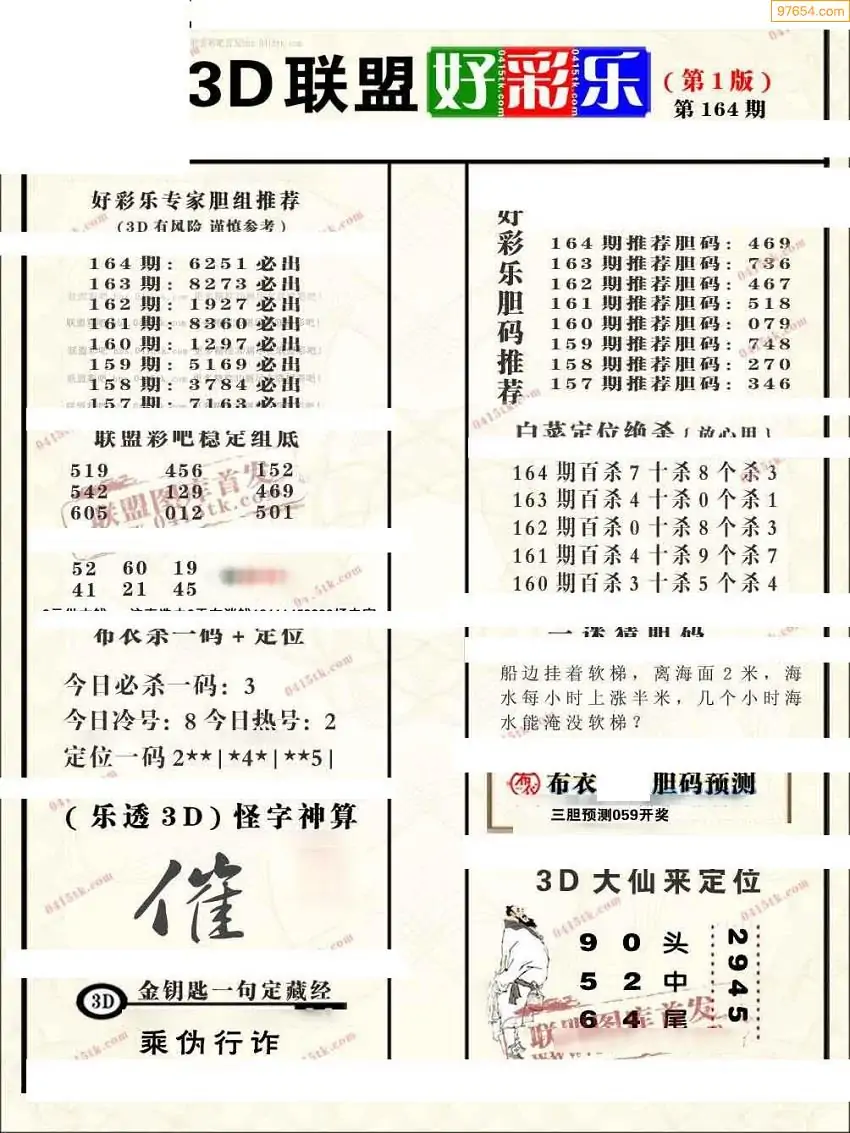 97654.com
3D联盟 好彩乐 (第1版)
第164期
好彩乐专家胆组推荐
(3D有风险 谨慎参考)
164期: 6251必出
163期: 8273必出
162期: 1927必出
161期: 8360必出
160期: 1297必出
159期: 5169必出
158期: 3784必出
157期: 7163必出
联盟彩吧稳定组底
519 456 152
542 129 469
605 012 501
52 60 19
41 21 45
布衣杀一码+定位
今日必杀一码: 3
今日冷号: 8 今日热号: 2
定位一码2**|*4*|**5|
(乐透3D)怪字神算
催
3D 金钥匙一句定藏经
乘伪行诈
好彩乐胆码推荐
164期推荐胆码: 469
163期推荐胆码: 736
162期推荐胆码: 467
161期推荐胆码: 518
160期推荐胆码: 079
159期推荐胆码: 748
158期推荐胆码: 270
157期推荐胆码: 346
白菜定位绝杀(放心用)
164期百杀7十杀8个杀3
163期百杀4十杀0个杀1
162期百杀0十杀8个杀3
161期百杀4十杀9个杀7
160期百杀3十杀5个杀4
一迷猜胆码
船边挂着软梯，离海面2米，海
水每小时上涨半米，几个小时海
水能淹没软梯？
布衣 胆码预测
三胆预测059开奖
3D大仙来定位
9 0 头
5 2 中
6 4 尾
2945
联盟图库首发
0415tk.com